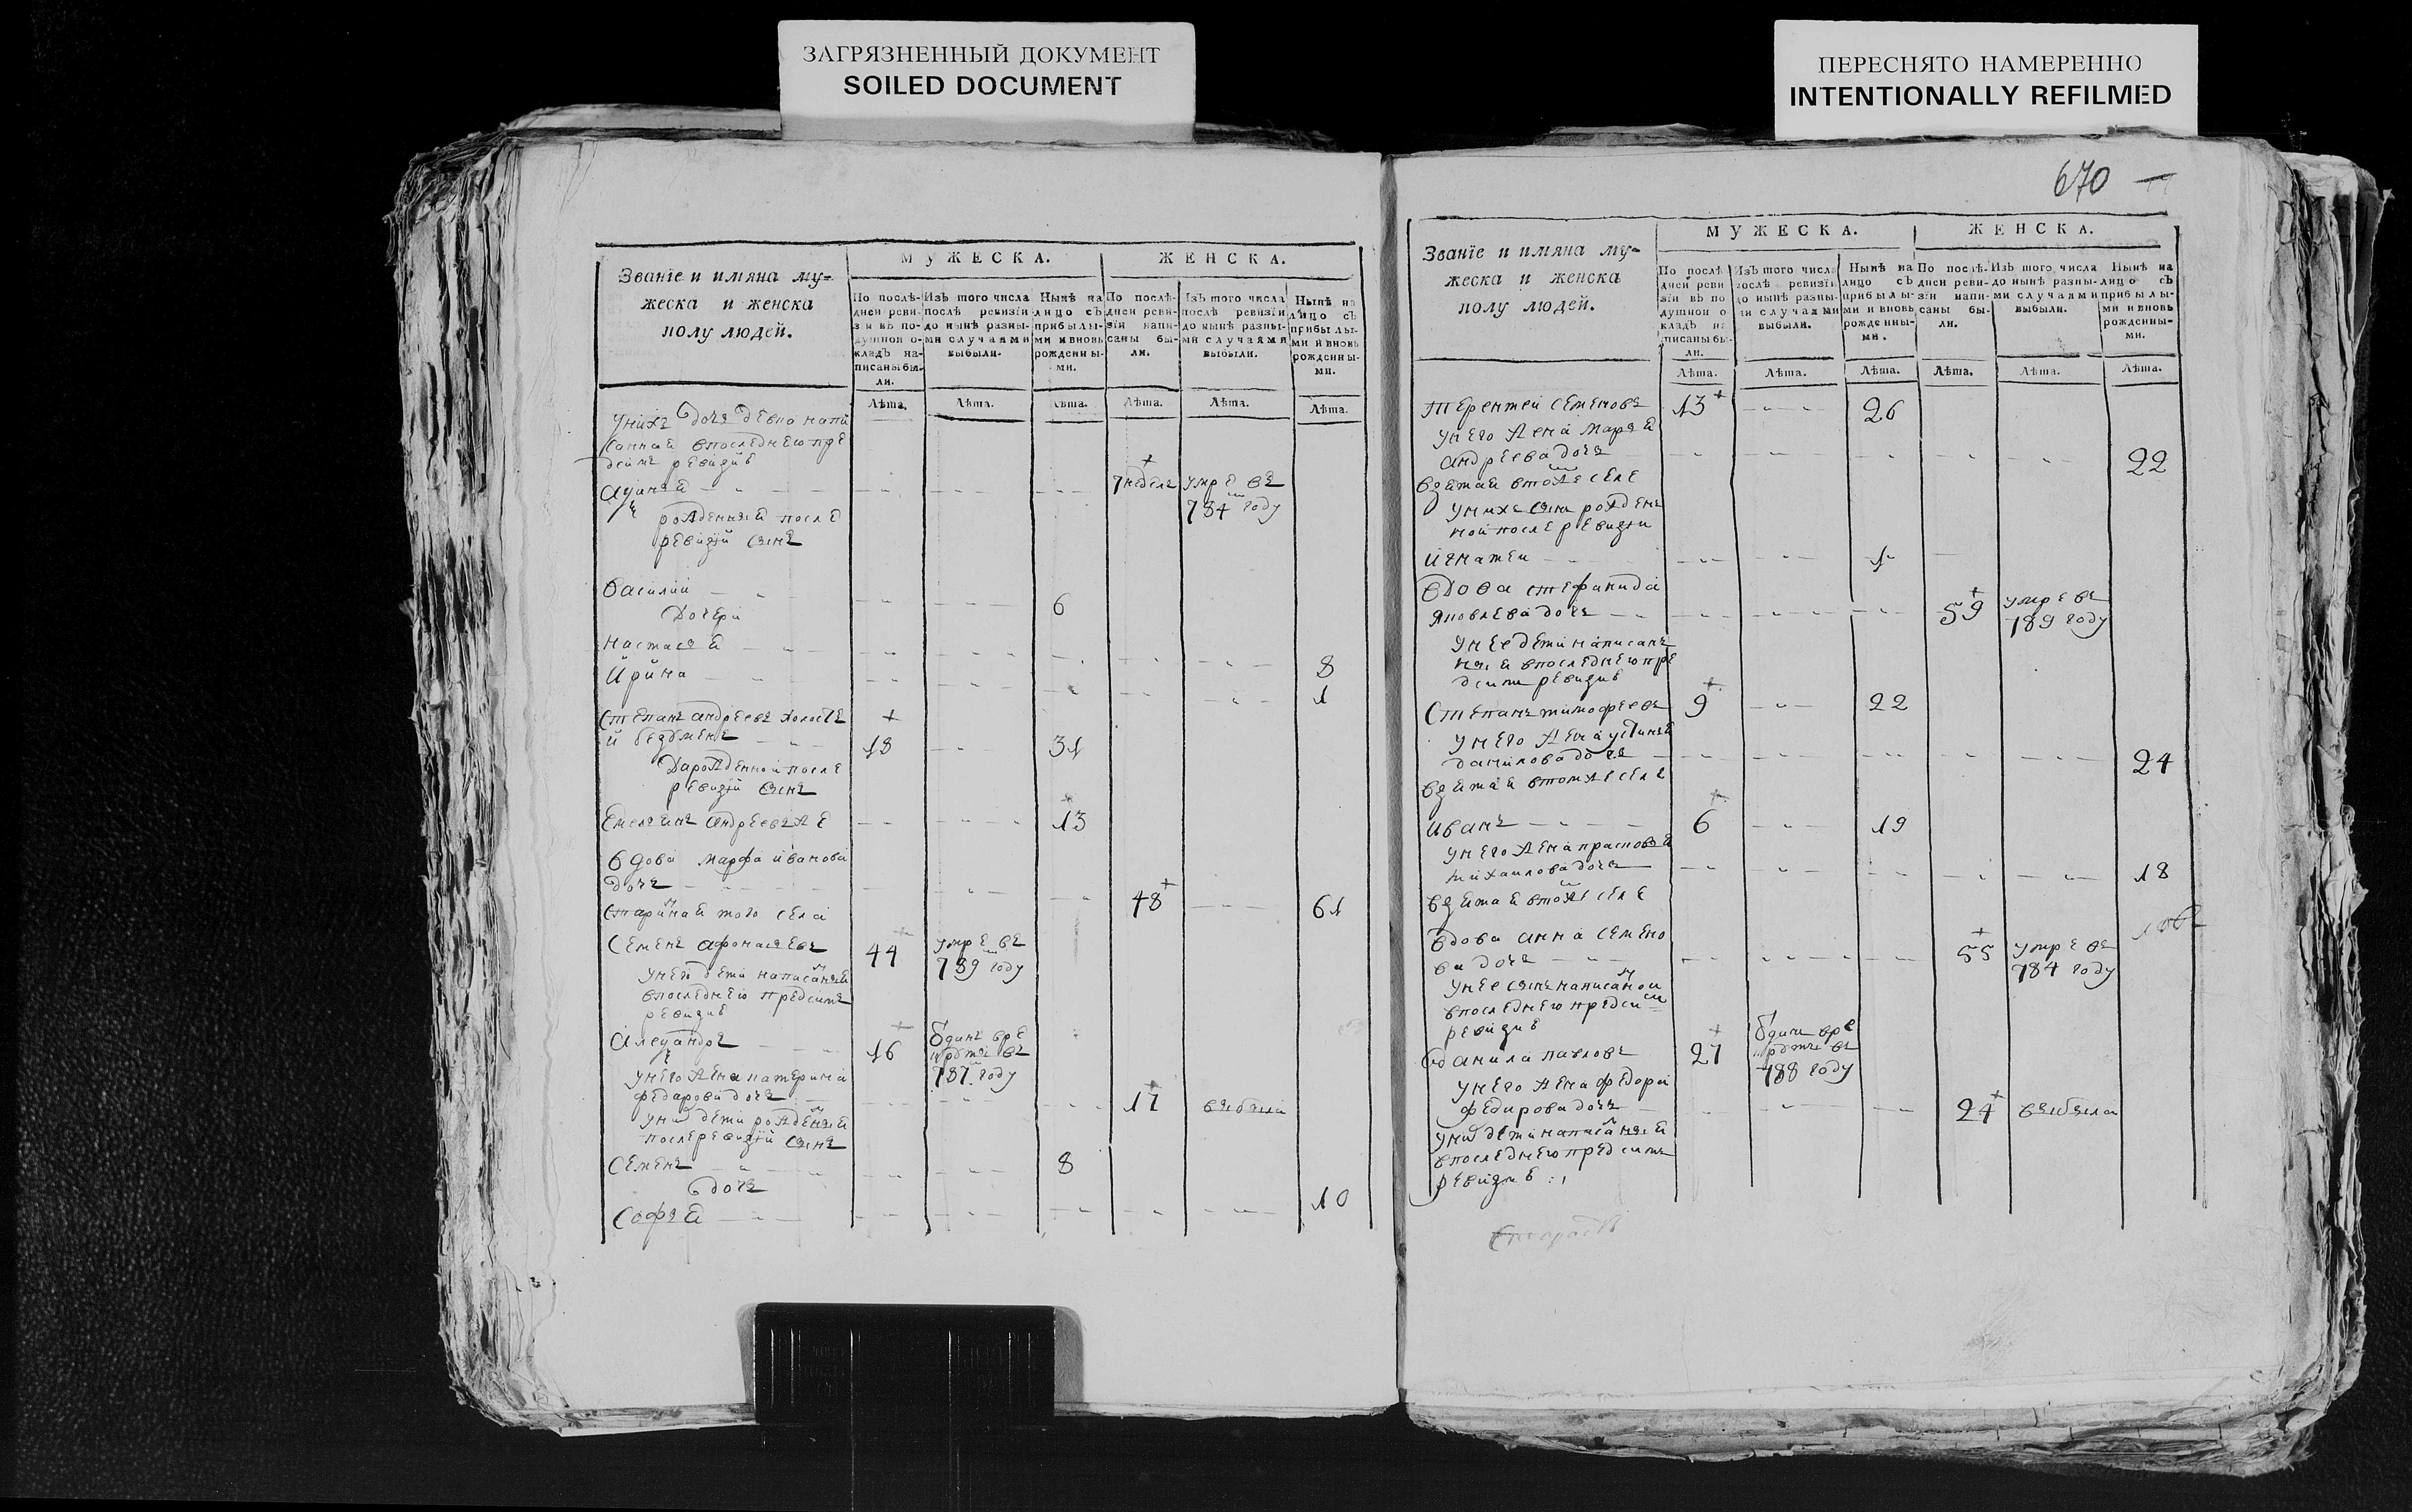 ЗАГРЯЗНЕННЫЙ ДОКУМЕНТ
SOILED DOCUMENT
ПЕРЕСНЯТО НАМЕРЕННО
INTENTIONALLY REFILMED
Званїе и имяна му-
жеска и женска
полу людей.
МУЖЕСКА.
ЖЕНСКА.
По послѣ-
дней реви-
зіи въ по-
душной о-
кладъ на-
писаны бы-
ли.
Изъ того числа
послѣ ревизїи
до нынѣ разны-
ми случаями
выбыли.
Нынѣ на
лицо съ
прибылы-
ми и вновь
рожденны-
ми.
По послѣ-
дней реви-
зїи напи-
саны бы-
ли.
Изъ того числа
послѣ ревизїи
до нынѣ разны-
ми случаями
выбыли.
Нынѣ на
лицо съ
прибылы-
ми и вновь
рожденны-
ми.
Лѣта. Лѣта. Лѣта. Лѣта. Лѣта. Лѣта.
унихъ дочь девка напи
санная впоследнею пре
дсимъ ревизиѣ
7 недель умре въ
784 году
рожденныя после
ревизїи сынъ
василий 6
дочери
настасья 8
ирина 1
степанъ андреевъ холостъ
18 31
дарожденной после
ревизїи сынъ
емельянъ андреевъ же 13
вдова марфа иванова
дочь 48 61
того села
семенъ афонасьевъ 44 умре въ
789 году
унего дети написаныя
впоследнею предсимъ
ревизиѣ
16 отданъ вре
круты въ
787 году
унего жена катерина
федарова дочь 17 выбыла
уних дети рожденыя
послеревизїи сынъ
семенъ 8
дочь
софья 10
670
Званїе и имяна му-
жеска и женска
полу людей.
МУЖЕСКА.
ЖЕНСКА.
По послѣ
дней реви
зїи въ по
душной о
кладъ на
писаны бы-
ли.
Изъ того числа
послѣ ревизїи
до нынѣ разны-
ми случаями
выбыли.
Нынѣ на
лицо съ
прибылы-
ми и вновь
рожденны-
ми.
По послѣ-
дней реви-
зїи напи-
саны бы-
ли.
Изъ того числа
до нынѣ разны-
ми случаями
выбыли.
Нынѣ на
лицо съ
прибылы-
ми и вновь
рожденны-
ми.
Лѣта. Лѣта. Лѣта. Лѣта. Лѣта. Лѣта.
терентей семеновъ 13 26
унего жена марья
андреева дочь 22
взятая втомже селе
унихъ сынъ рожден
ной после ревизїи
игнатеи 1
вдова стефанида
яковлева дочь 59 умре въ
789 году
унее дети написан
ныя впоследнею пре
дсимъ ревизиѣ
степанъ тимофеевъ 9 22
унего жена устинья
данилова дочь 24
взятая втомже селе
иванъ 6 19
унего жена прасковья
михаилова дочь 18
взятая втомже селе
вдова анна семено
ва дочь 55 умре въ
784 году
унее сынъ написаной
впоследнею предсим
ревизиѣ
данила павловъ 27 отданъ вре
круты въ
788 году
унего жена федора
федорова дочь 24 выбыла
уних дети написаныя
впоследнею предсимъ
ревизиѣ